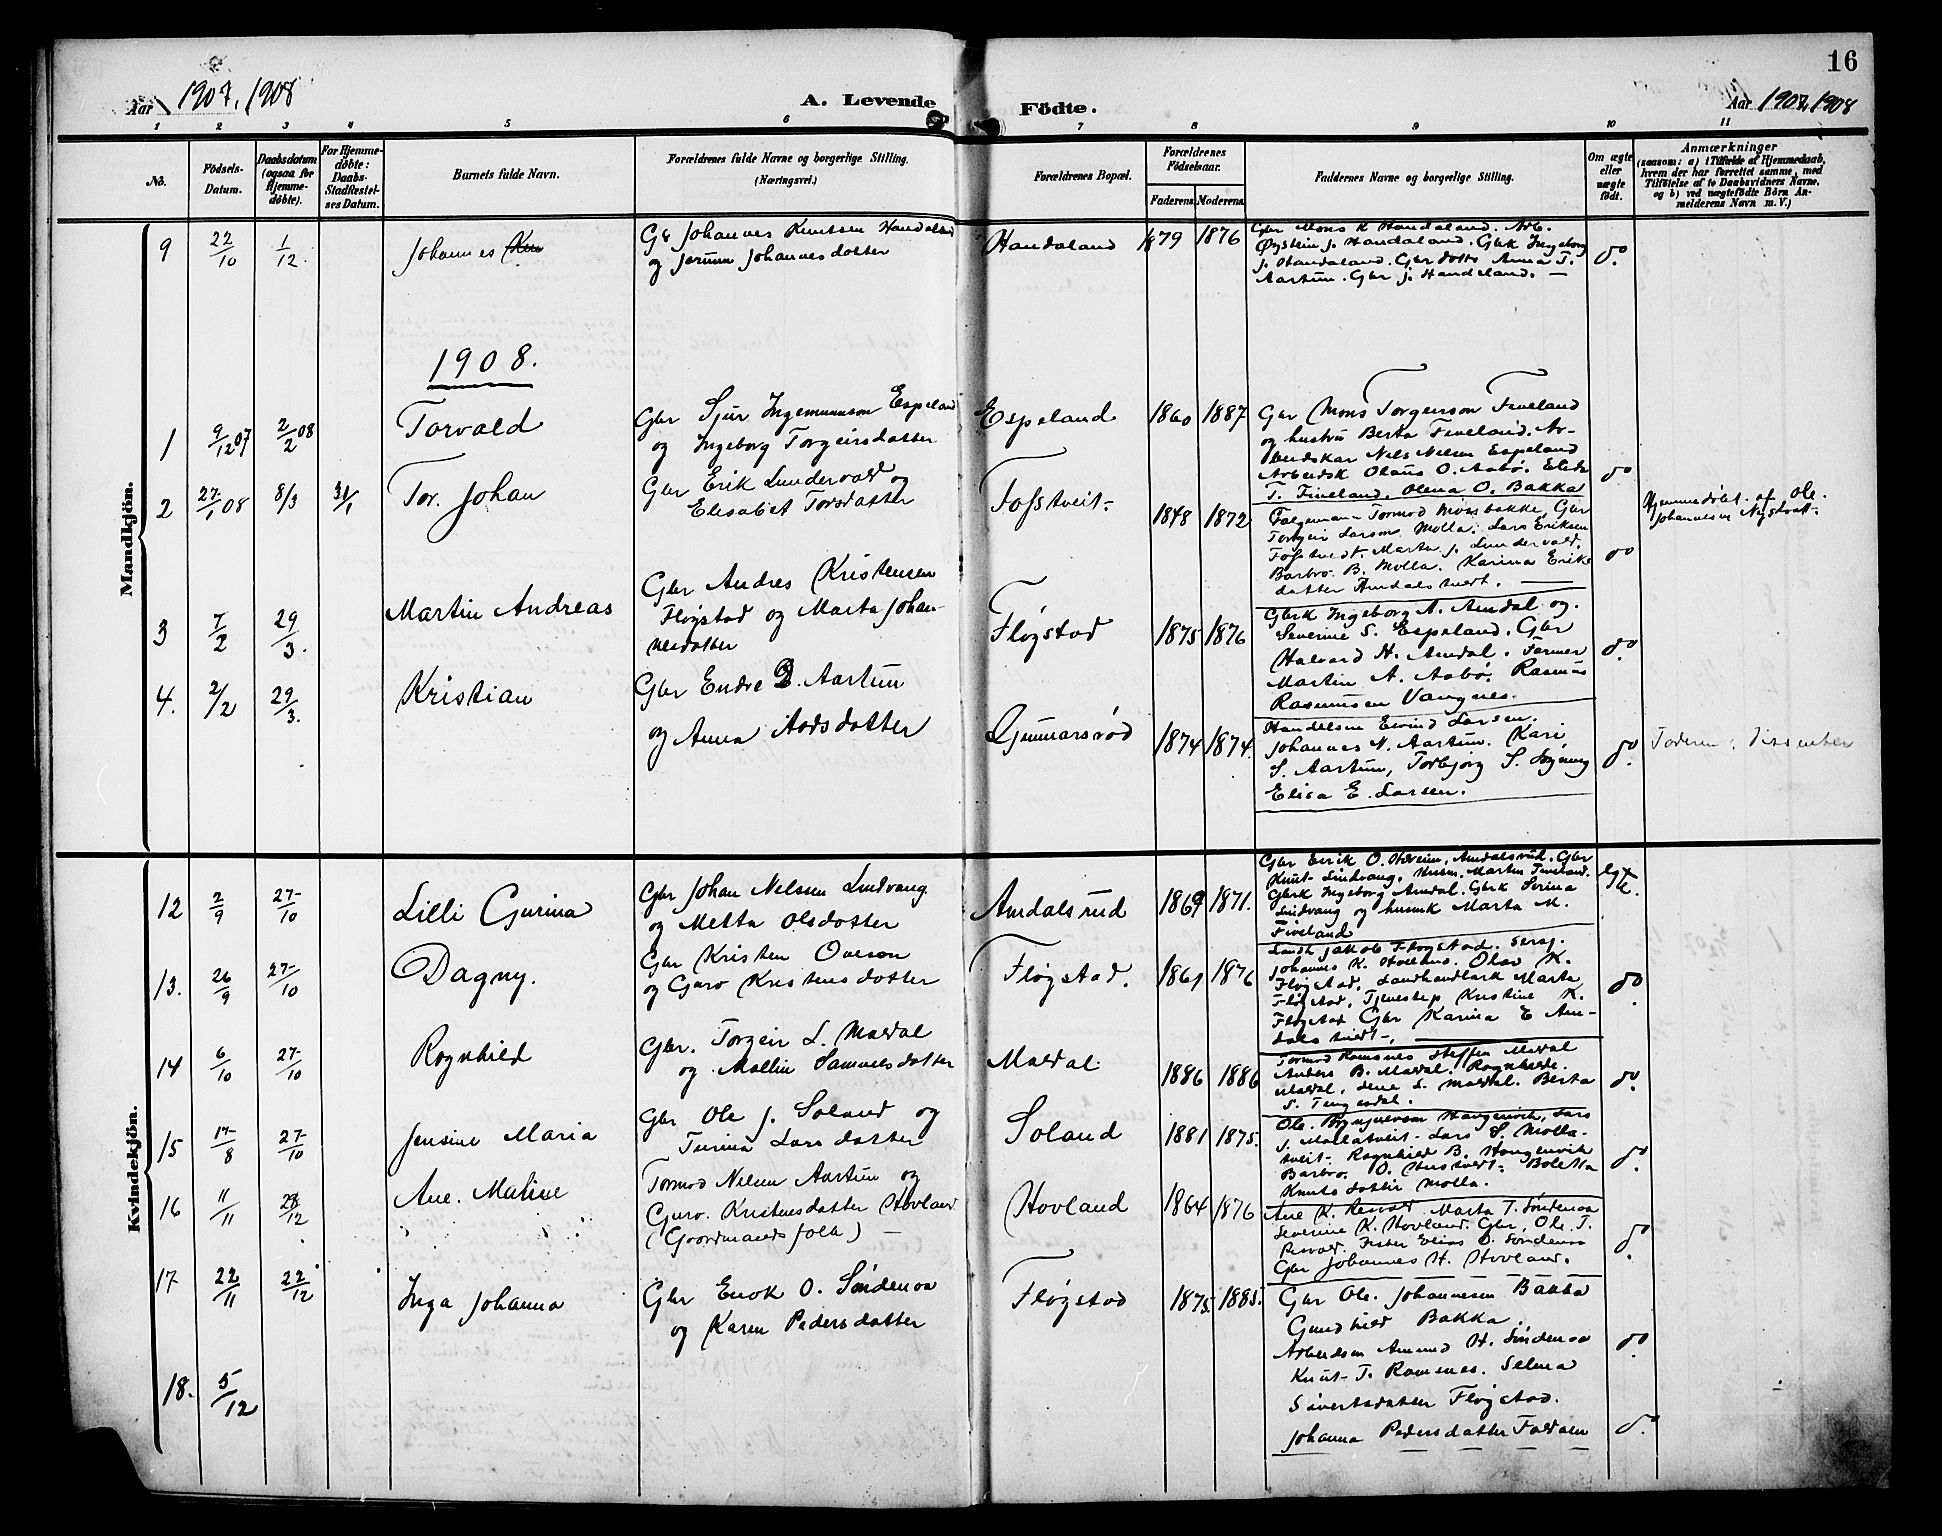 16
Aar 1907, 1908
A. Levende
Födte.
Aar 1907, 1908
1 2 3 4 5 6 7 8 9 10 11
No.
Födsels-
Datum.
Daabsdatum
(ogsaa for
Hjemme-
døbte).
For Hjemme-
døbte:
Daabs-
Stadfæstel-
ses Datum.
Barnets fulde Navn.
Forældrenes fulde Navne og borgerlige Stilling.
(Næringsvei.)
Forældrenes Bopæl.
Forældrenes
Födselsaar.
Faderens Moderens
Faddernes Navne og borgerlige Stilling.
Om ægte
eller
uægte
født.
Anmærkninger
(saasom: a) i Tilfælde af Hjemmedaab,
hvem der har forrettet samme, med
Tilföielse af to Daabsvidners Navne,
og b) ved uægtefödte Börn An-
melderens Navn m. V.)
Mandkjön.
9 22/10 1/12. Johannes
Gbr Johannes Knutsen Handeland
og Jorunn Johannesdotter
Handaland 1879 1876
Gbr Mons K Handaland. Arb.
Øystein J. Handaland. Gbrk Ingeborg
J. Handaland. Gbr dotter Anna T.
Aartun. Gbr J. Handeland. —
do.
1908.
1 9/12 07 2/2 08 Torvald
Gbr Sjur Ingemunnson Espeland
og Ingeborg Torgeirsdatter
Espeland 1860 1887
Gbr Mons Torgerson Fiveland
og hustru Berta Fiveland. Ar-
beidskar Nels Nelsen Espeland
Arbeidsk Olaus O. Aabø.
T. Fiveland. Olena O. Bakka
do
2 27/1 08 8/3 31/1 Tor. Johan
Gbr Erik Lundervold og
Elisabet Torsdatter
Fosstveit- 1848 1872
Tormod Monsbakke, Gbr
Torgeir Larsen Molla. Lars Eriksen
Marta J. Lundervold.
Barbro. B. Molla. Karina Eriks
datter Amdalstveit. —
do
Hjemmedøbt af Ole.
Johannesen
3 7/2 29/3. Martin Andreas
Gbr Andres Kristensen
Fløgstad og Marta Johan-
nesdatter
Fløgstad 1875 1876
Gbrk Ingeborg A. Amdal og.
Severine S. Espeland. Gbr
Halvard H. Amdal. Farmer
Martin A. Aabø. Rasmus
Rasmussen Vangnes.
do.
4. 2/2 29/3. Kristian
Gbr Endre Aartun
og Anna Aadsdatter
Gunnarsrød 1874 1874.
Handelsm Eivind Larsen.
Johannes N. Aartun. Kari
S. Aartun, Torbjorg S.
Elisa E. Larsen.
do.
Faderen: Dissenter
Kvindekjön.
12 2/9 27/10 Lilli Gurina
Gbr Johan Nelsen Lindvang
og Metta Olsdotter
Amdalsrud 1869 1871.
Gbr Eirik O. Amdalsrud. Gbr
Knut Lindvang, Martin Fiveland.
Gbrk Ingeborg Amdal. Gbrk Serina
Lindvang og Marta M.
Fiveland
egte.
13. 26/9 27/10 Dagny.
Gbr Kristen Oveson
og Guro Kristensdotter
Fløgstad. 1861 1876
Jakob Fløgstad. Serg.
Johannes K. Hovland. Olav K.
Fløgstad. Marta
Fløgstad, Kristine K.
Fløgstad Gbr Karina E Am-
dalstveit-.
do.
14 6/10 27/10 Rognhild
Gbr. Torgeir L. Maldal
og Mallin Samuelsdatter
Maldal 1886 1886
Tormod Ramsnes Steffen Maldal
Anders B. Maldal. Rognhild.
Maldal, Lena L. Maldal. Berta
S. Tengesdal.
do.
15 17/8 27/10 Jensine Maria
Gbr Ole J. Soland og
Turina Larsdatter
Soland 1881 1875.
Ole. Brynjulvson Haugenvik, Lars
J. Mollatveit- Lars S. Molla-
tveit- Rognhild B. Haugenvik
Barbro. O. Boletta
Knutsdatter Molla.
do.
16 11/11 /12 Ane. Maline
Tormod Nelsen Aartun og
Guro. Kristensdatter Hovland
(Gaardmandsfolk) —
Hovland 1864 1876
Ane K. Marta T. Søndenaa
Severine K. Hovland. Gbr, Ole T.
Elias O. Søndenaa
Gbr Johannes H. Hovland.
do.
17 22/11 22/12 Inga Johanna
Gbr Enok O. Søndenaa
og Karen Pedersdatter
Fløgstad 1875 1885.
Gbr Ole. Johannesen Bakka
Gundhild Bakka.
Arbeidsm Amund H. Søndenaa
Knut- T. Ramsnes. Selma
Sivertsdatter Fløgstad.
Johanna Pedersdatter
do.
18. 5/12
do.